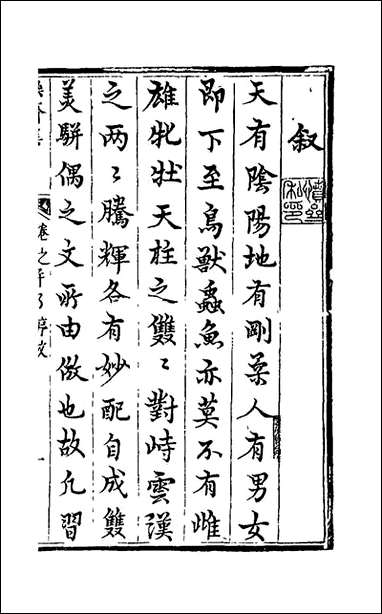 叙
天有陰陽地有剛柔人有男女
即下至鳥獸蟲魚亦莫不有雌
雄牝牡天柱之雙〻對峙雲漢
之兩〻騰輝各有妙配自成雙
美駢偶之文所由倣也故凡習